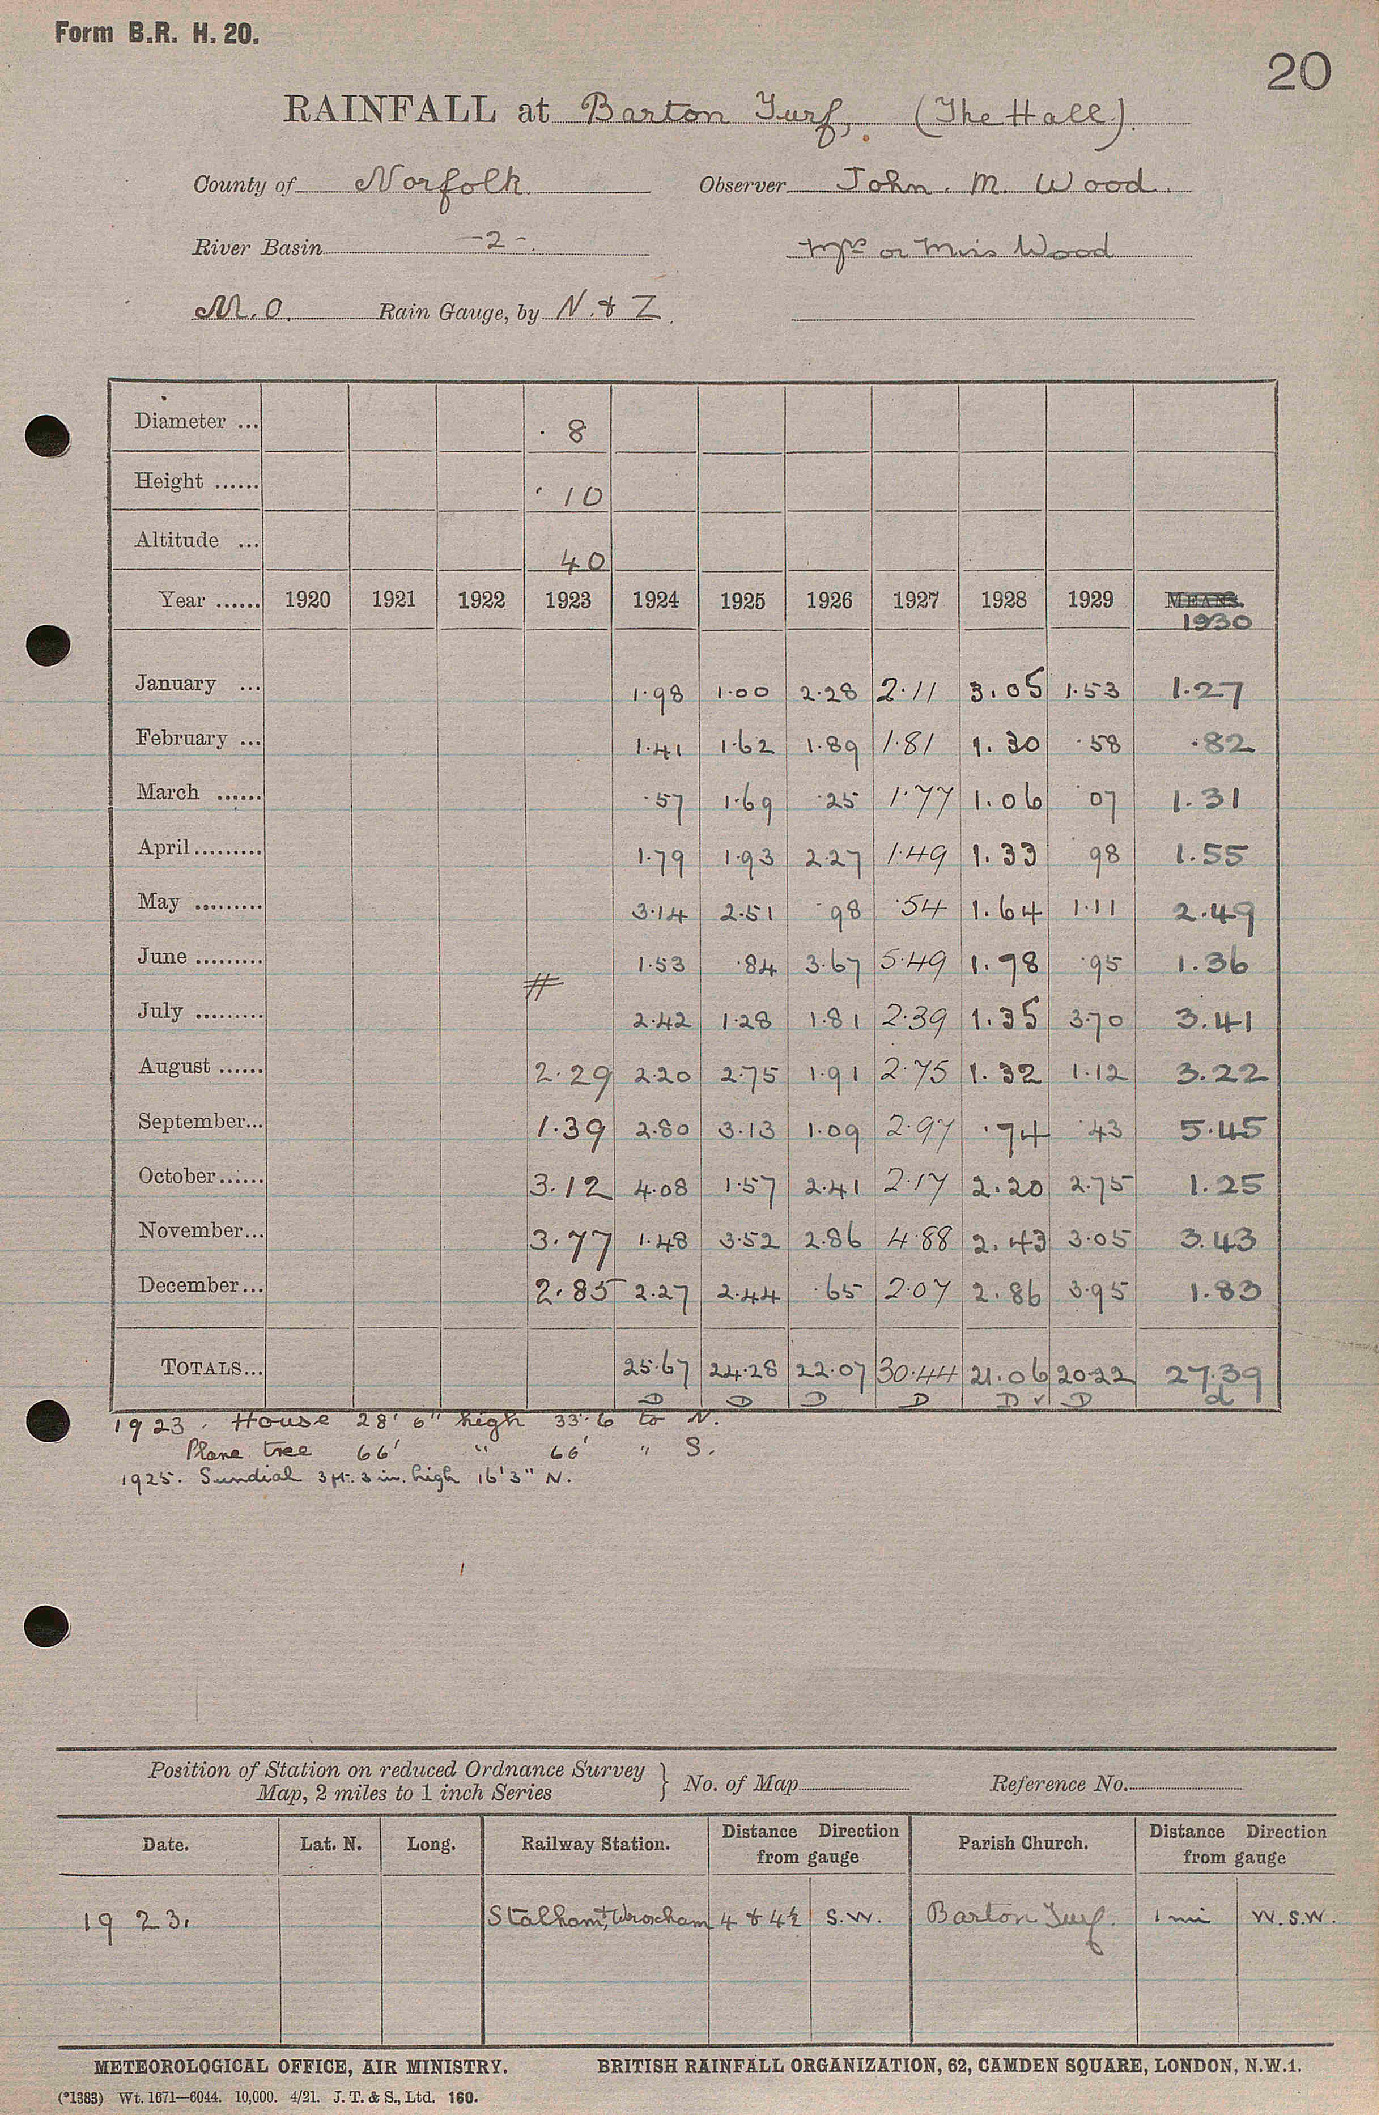 Form B.R. H. 20.
20
RAINFALL at Barton Turf, (The Hall).
County of Norfolk. Observer John. M. Wood.
River Basin -2-. Mrs or Miss Wood
M.O. Rain Gauge, by N. & Z.
Diameter ... 8
Height ...... 10
Altitude ... 40
Year ...... 1920 1921 1922 1923 1924 1925 1926 1927 1928 1929 MEANS.
1930
January ... 1·98 1·00 2·28 2·11 3.05 1·53 1·27
February ... 1·41 1·62 1·89 1·81 1.30 ·58 ·82
March ...... ·57 1·69 ·25 1·77 1.06 07 1.31
April......... 1·79 1·93 2·27 1·49 1.33 98 1.55
May ......... 3·14 2·51 ·98 ·54 1.64 1·11 2.49
June ......... 1·53 ·84 3·67 5·49 1.78 ·95 1.36
July ......... # 2·42 1·28 1·81 2·39 1.35 3·70 3.41
August ...... 2·29 2·20 2·75 1·91 2·75 1.32 1·12 3.22
September... 1·39 2·80 3·13 1·09 2·97 ·74 ·43 5·45
October...... 3.12 4·08 1·57 2·41 2·17 2.20 2·75 1.25
November... 3·77 1·48 3·52 2·86 4·88 2.43 3·05 3.43
December... 2·85 2·27 2·44 ·65 2·07 2.86 3·95 1.83
TOTALS... 25·67 24·28 22·07 30·44 21.06 20·22 27.39
D D D D D ✓ D d
1923. House 28' 6" high 33'·6 to N.
Plane tree 66' " 66' " S.
1925. Sundial 3 ft. 3 in. high 16'3" N.
Position of Station on reduced Ordnance Survey
Map, 2 miles to 1 inch Series } No. of Map Reference No.
Date. Lat. N. Long. Railway Station. Distance from gauge Direction Parish Church. Distance from gauge Direction
1923. Stalham + Wroxham 4 & 4½ S.W. Barton Turf. 1 mi W.S.W.
METEOROLOGICAL OFFICE, AIR MINISTRY. BRITISH RAINFALL ORGANIZATION, 62, CAMDEN SQUARE, LONDON, N.W.1.
(*1383) Wt. 1671—6044. 10,000. 4/21. J. T. & S., Ltd. 160.